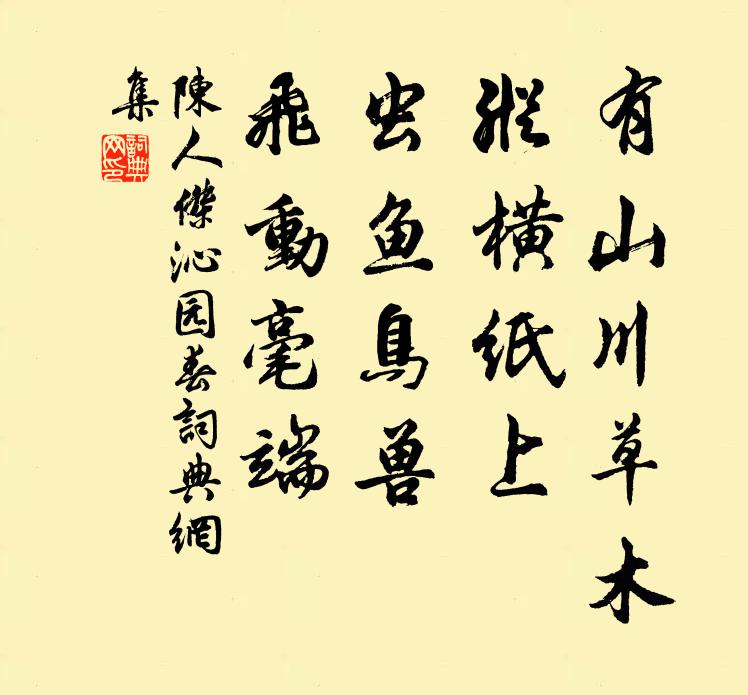 有山川草木
縱橫纸上
虫鱼鳥兽
飛動毫端
陳人傑沁园春詞典網
集
詞典
网印